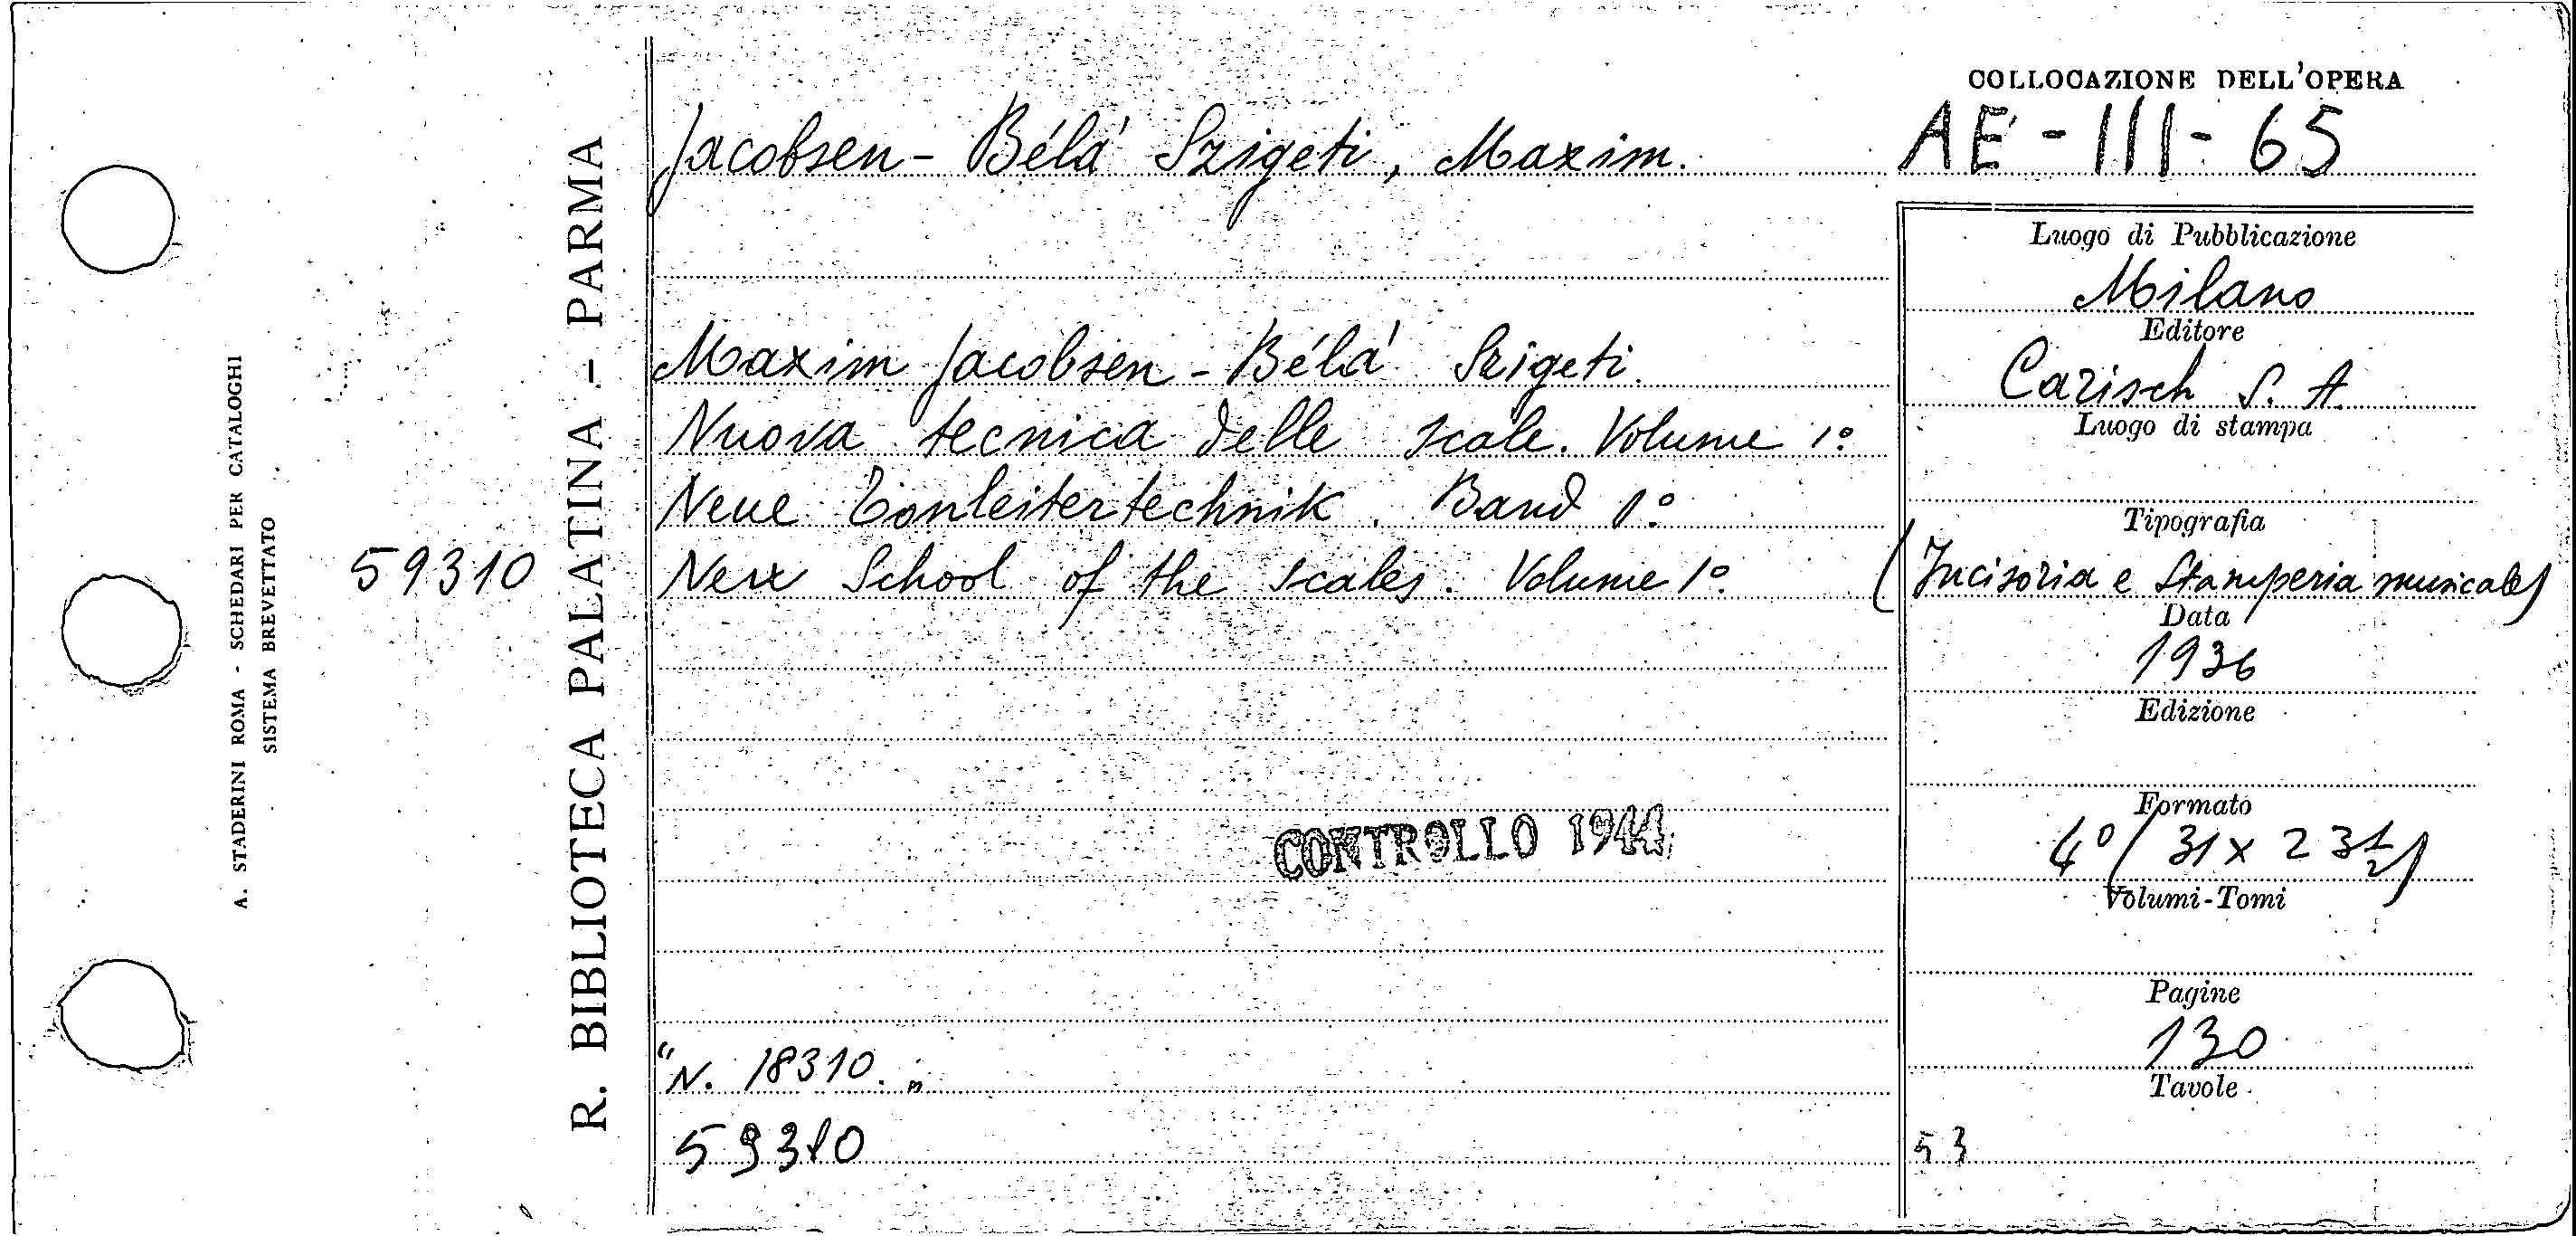 A. STADERINI ROMA - SCHEDARI PER CATALOGHI
SISTEMA BREVETTATO
59310
R. BIBLIOTECA PALATINA - PARMA
Jacobsen - Bélá Szigeti, Maxim.
Maxim Jacobsen - Bélá Szigeti.
Nuova tecnica delle scale. Volume 1º
Neue Tonleitertechnik. Band 1º
New School of the scales. Volume 1º
CONTROLLO 1944
"N. 18310. „
59310
COLLOCAZIONE DELL'OPERA
AE - III - 65
Luogo di Pubblicazione
Milano
Editore
Carisch S. A.
Luogo di stampa
Tipografia
(Incisoria e Stamperia musicale)
Data
1936
Edizione
Formato
4º (31 x 23 1/2)
Volumi-Tomi
Pagine
130
Tavole
53